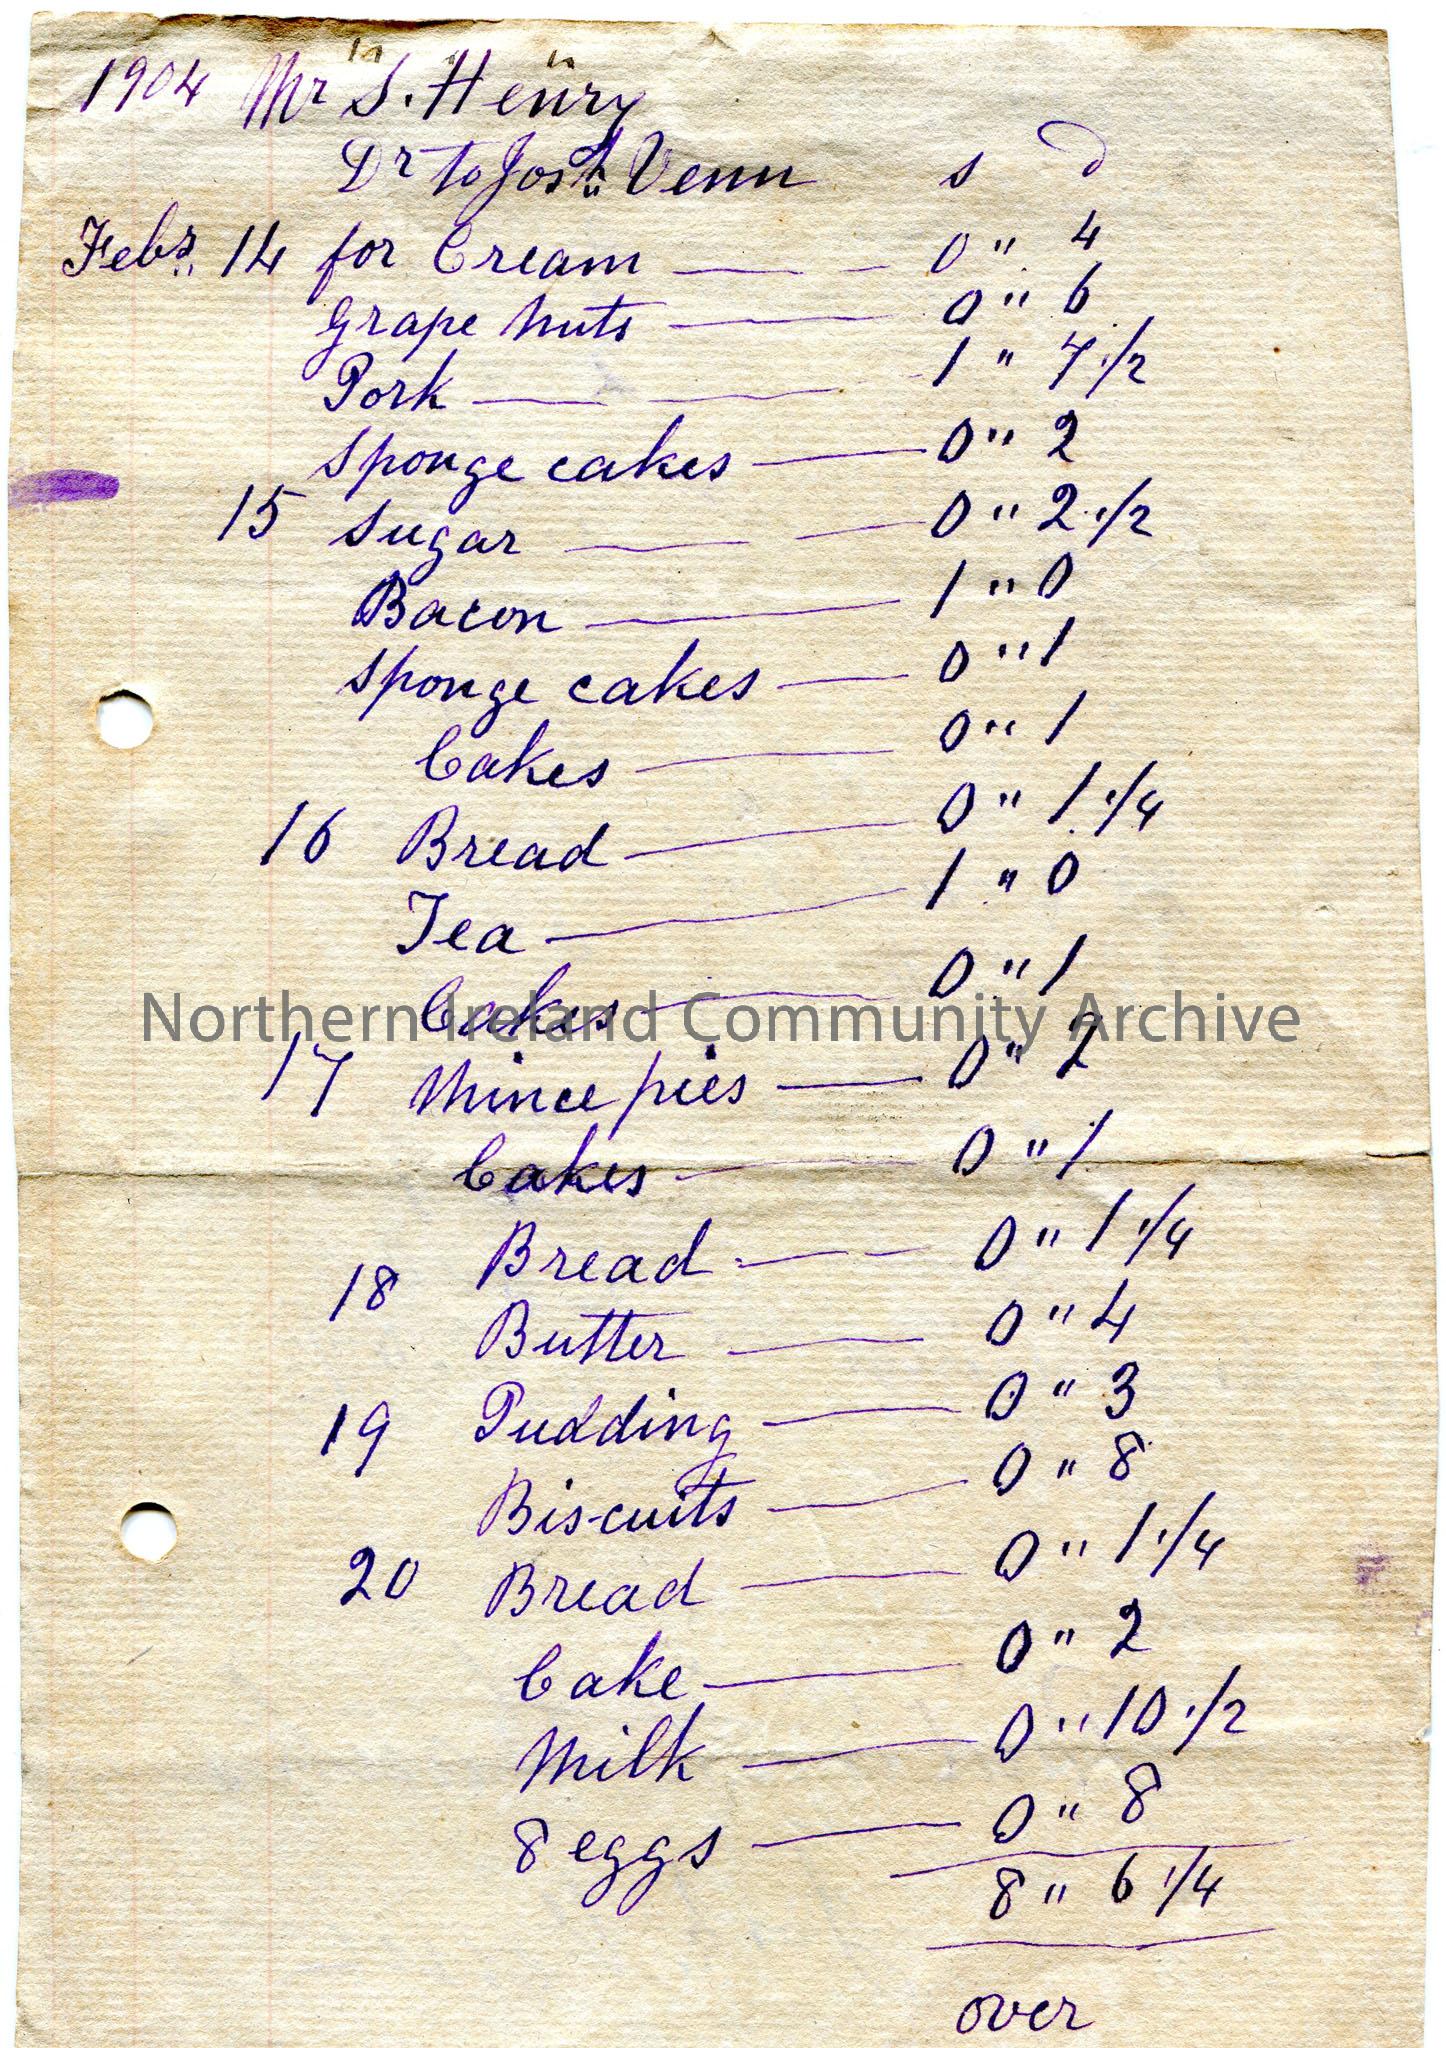 1904 Mr S. Henry
Dr to Josh Venn s d
Feby 14 for Cream — 0 " 4
Grape nuts — 0 " 6
Pork — 1 " 7 1/2
Sponge cakes — 0 " 2
15 Sugar — 0 " 2 1/2
Bacon — 1 " 0
Sponge cakes — 0 " 1
Cakes — 0 " 1
16 Bread — 0 " 1 1/4
Tea — 1 " 0
Cakes — 0 " 1
Northern Ireland Community Archive
17 Mince pies — 0 " 2
Cakes — 0 " 1
Bread — 0 " 1 1/4
18 Butter — 0 " 4
19 Pudding — 0 " 3
Biscuits — 0 " 8
20 Bread — 0 " 1 1/4
Cake — 0 " 2
Milk — 0 " 10 1/2
8 eggs — 0 " 8
8 " 6 1/4
over